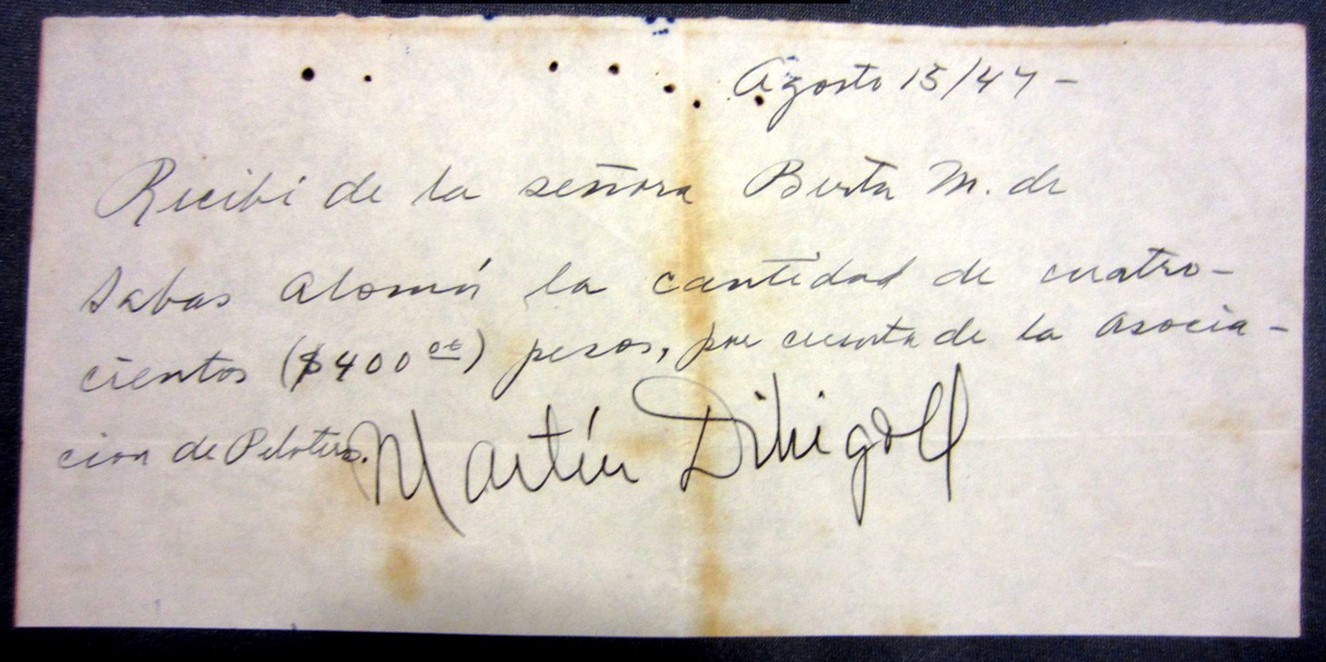 Agosto 15/47 -
Recibi de la señora Berta M. de
Sabas Alomá la cantidad de cuatro-
cientos ($400 00) pesos, por cuenta de la Asocia-
cion de Peloteros.
Martín Dihigo